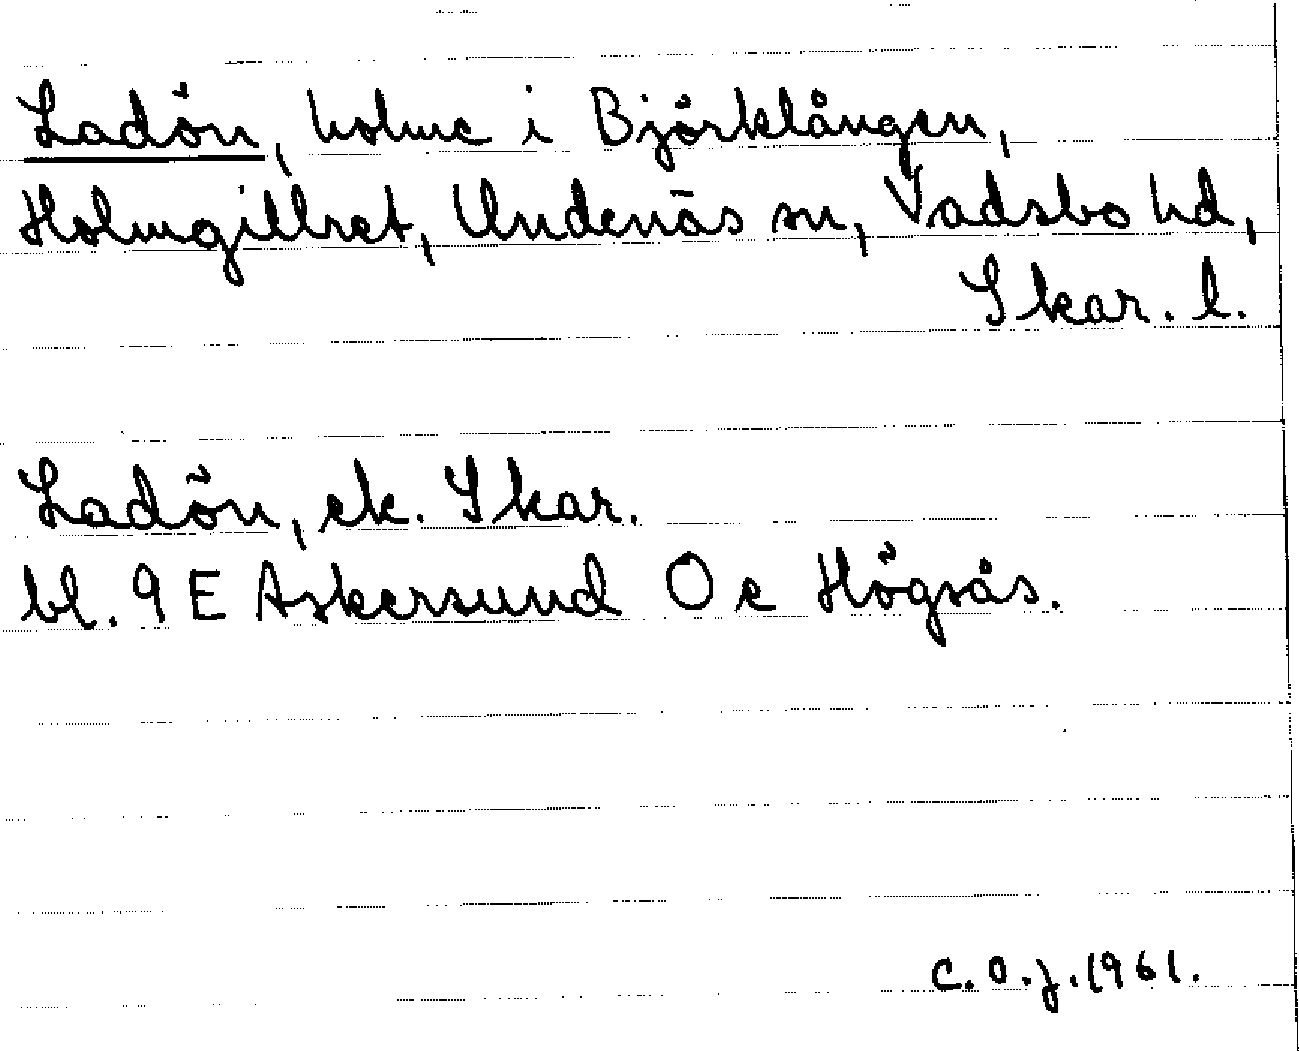 Ladön, holme i Björklången,
Holmgillret, Undenäs sn, Vadsbo hd,
Skar. l.
Ladön, ek. Skar.
bl. 9 E Askersund O e Högsås.
C.O.J. 1961.